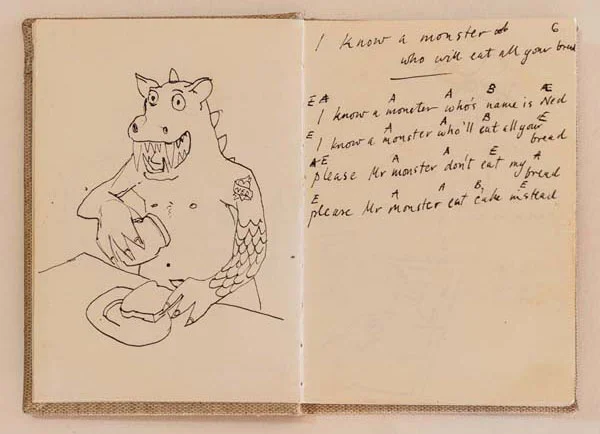 6
I know a monster
who will eat all your bread
E A A A B Æ
I know a monster who's name is Ned
E A A B E
I know a monster who'll eat all your bread
A E A A E A
please Mr monster don't eat my bread
E A A B E
please Mr monster eat cake instead